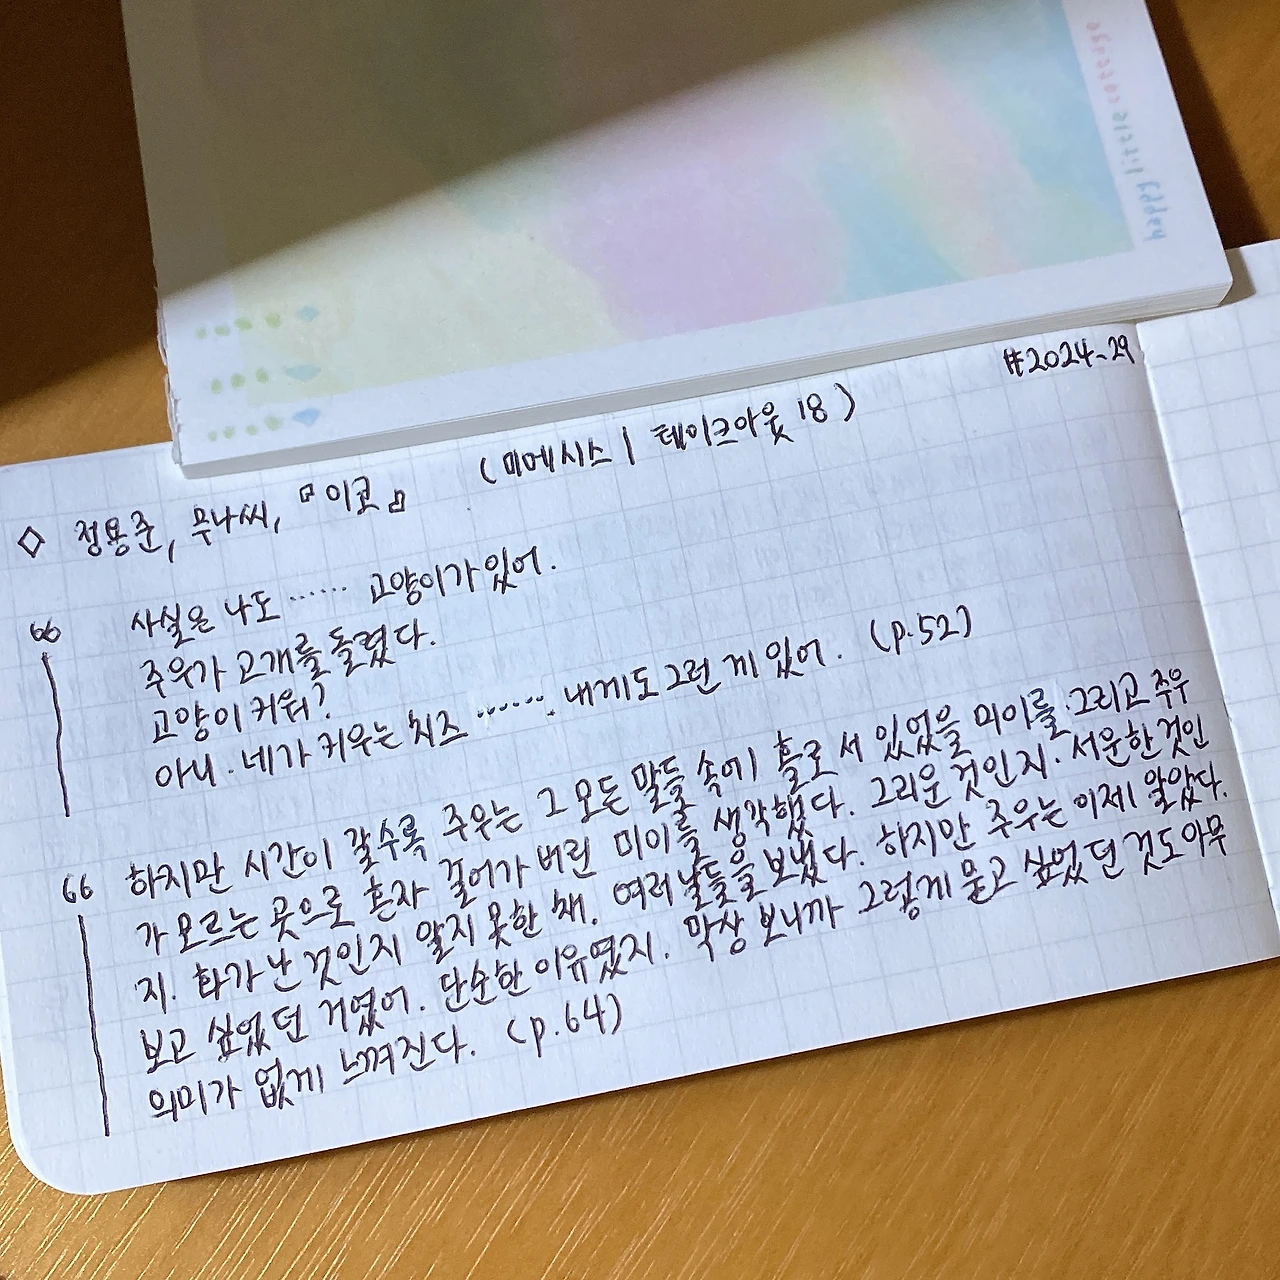 happy little cottage
#2024-29
◇ 정용준, 무나씨, 『이코』 (미메시스 | 테이크아웃 18)
66 사실은 나도 …… 고양이가 있어.
주우가 고개를 돌렸다.
고양이 키워?
아니. 네가 키우는 치즈 ……. 내게도 그런 게 있어. (p.52)
66 하지만 시간이 갈수록 주우는 그 모든 말들 속에 홀로 서 있었을 미이를. 그리고 주우
가 모르는 곳으로 혼자 걸어가 버린 미이를 생각했다. 그리운 것인지. 서운한 것인
지. 화가 난 것인지 알지 못한 채. 여러 날들을 보냈다. 하지만 주우는 이제 알았다.
보고 싶었던 거였어. 단순한 이유였지. 막상 보니까 그렇게 묻고 싶었던 것도 아무
의미가 없게 느껴진다. (p.64)